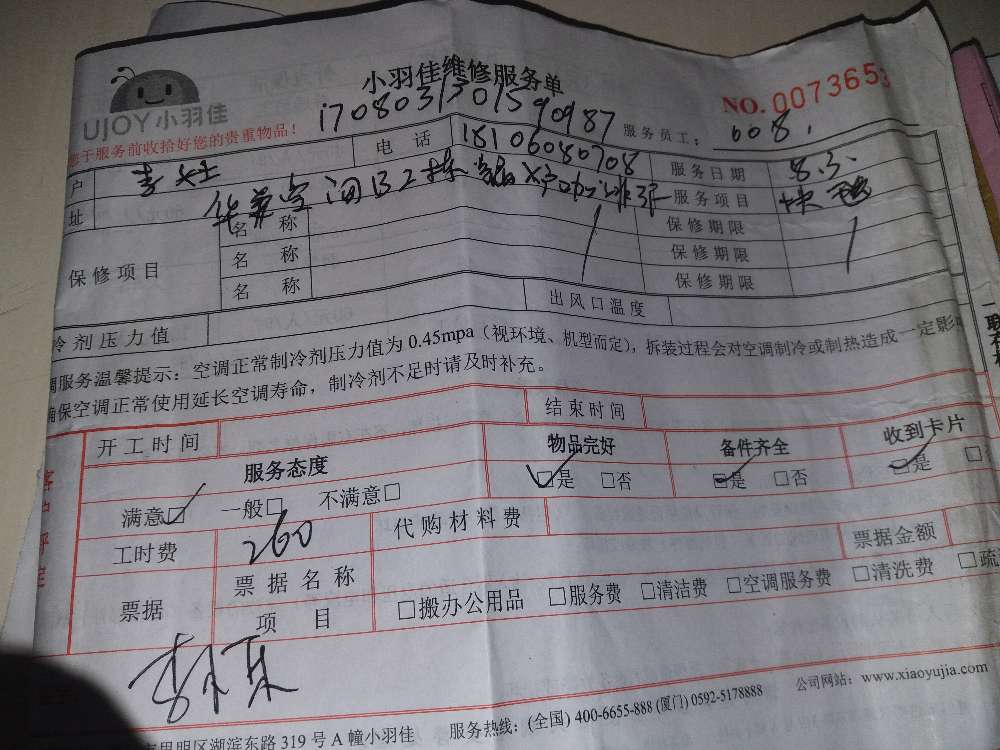 小羽佳维修服务单
UJOY小羽佳
NO.007365
1708031301590987
您于服务前收拾好您的贵重物品!
服务员工: 608
户 李女士 电话 18106080708 服务日期 8.3
址 服务项目
保修项目
名称 保修期限
名称 保修期限
名称 保修期限
冷剂压力值 出风口温度
调服务温馨提示:空调正常制冷剂压力值为0.45mpa(视环境、机型而定),拆装过程会对空调制冷或制热造成一定影
确保空调正常使用延长空调寿命,制冷剂不足时请及时补充。
开工时间 结束时间
客户评定
服务态度 物品完好 备件齐全 收到卡片
满意☑ 一般□ 不满意□ ☑是 □否 ☑是 □否 ☑是 □
工时费 260 代购材料费
票据 票据名称 票据金额
项目 □搬办公用品 □服务费 □清洁费 □空调服务费 □清洗费 □疏
公司网站:www.xiaoyujia.com
思明区湖滨东路319号A幢小羽佳 服务热线:(全国)400-6655-888(厦门)0592-5178888
一联